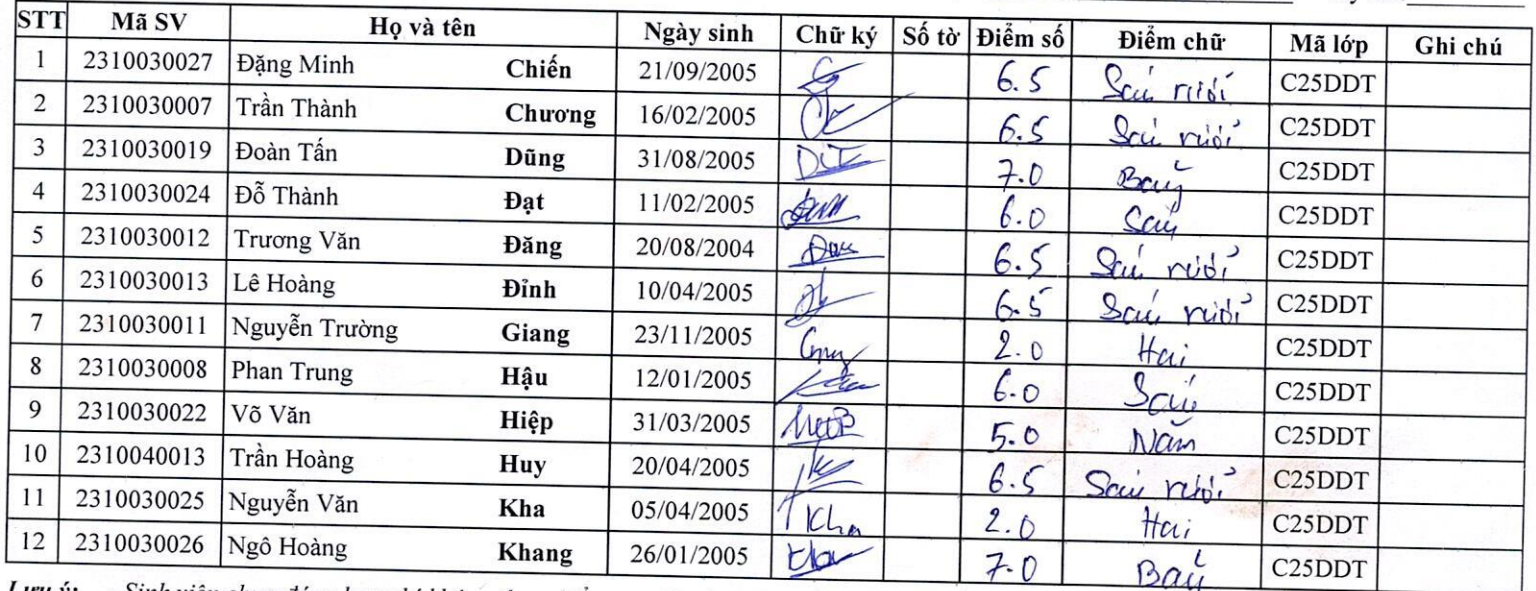 STT Mã SV Họ và tên Ngày sinh Chữ ký Số tờ Điểm số Điểm chữ Mã lớp Ghi chú
1 2310030027 Đặng Minh Chiến 21/09/2005 6.5 Sáu rưỡi C25DDT
2 2310030007 Trần Thành Chương 16/02/2005 6.5 Sáu rưỡi C25DDT
3 2310030019 Đoàn Tấn Dũng 31/08/2005 7.0 Bảy C25DDT
4 2310030024 Đỗ Thành Đạt 11/02/2005 6.0 Sáu C25DDT
5 2310030012 Trương Văn Đăng 20/08/2004 6.5 Sáu rưỡi C25DDT
6 2310030013 Lê Hoàng Đỉnh 10/04/2005 6.5 Sáu rưỡi C25DDT
7 2310030011 Nguyễn Trường Giang 23/11/2005 2.0 Hai C25DDT
8 2310030008 Phan Trung Hậu 12/01/2005 6.0 Sáu C25DDT
9 2310030022 Võ Văn Hiệp 31/03/2005 5.0 Năm C25DDT
10 2310040013 Trần Hoàng Huy 20/04/2005 6.5 Sáu rưỡi C25DDT
11 2310030025 Nguyễn Văn Kha 05/04/2005 Kha 2.0 Hai C25DDT
12 2310030026 Ngô Hoàng Khang 26/01/2005 7.0 Bảy C25DDT
Lưu ý: - Sinh viên